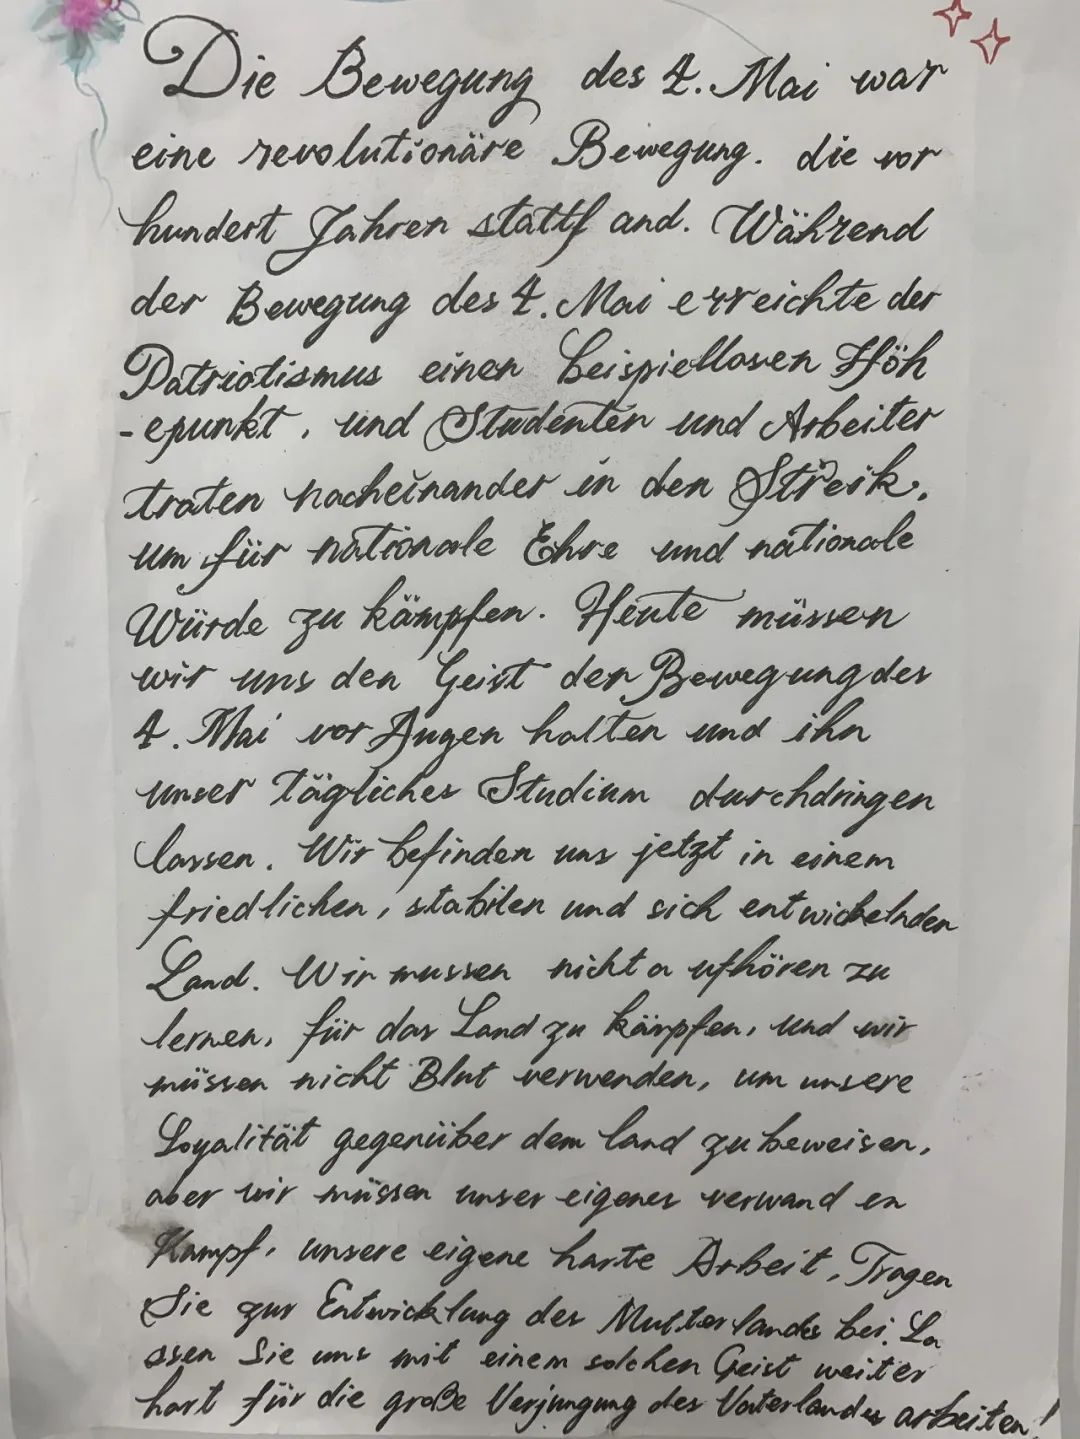 Die Bewegung des 4. Mai war
eine revolutionäre Bewegung. die vor
hundert Jahren stattf and. Während
der Bewegung des 4. Mai erreichte der
Patriotismus einen beispiellosen Höh
-epunkt, und Studenten und Arbeiter
traten nacheinander in den Streik,
um für nationale Ehre und nationale
Würde zu kämpfen. Heute müssen
wir uns den Geist der Bewegung des
4. Mai vor Augen halten und ihn
unser tägliches Studium durchdringen
lassen. Wir befinden uns jetzt in einem
friedlichen, stabilen und sich entwickelnden
Land. Wir mussen nicht a ufhören zu
lernen, für das Land zu kämpfen, und wir
müssen nicht Blut verwenden, um unsere
Loyalität gegenüber dem land zu beweisen,
aber wir müssen unser eigenes verwand en
Kampf, unsere eigene harte Arbeit, Tragen
Sie zur Entwicklung des Mutterlandes bei. La
ssen Sie uns mit einem solchen Geist weiter
hart für die große Verjüngung des Vaterlandes arbeiten!